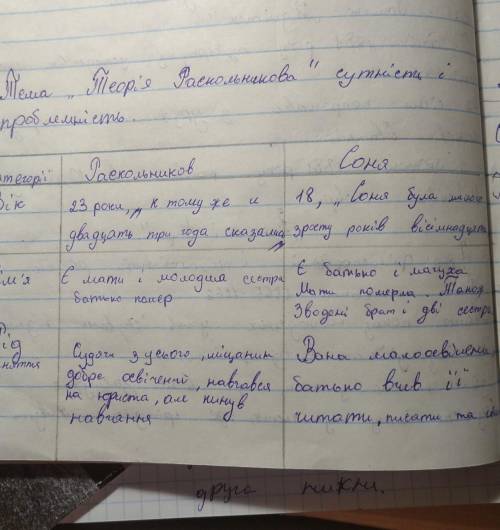 Тема „Теорія Раскольникова" сутність і
проблемність.
атегорії Раскольников Соня
Вік 23 роки, „к тому же и 18, „Соня була малого
двадцать три года сказались" зросту років вісімнадцяти
ім'я Є мати і молодша сестра Є батько і мачуха
батько помер Мати померла. Також
Зводені брат і дві сестри
Рід
няття Судячи з усього, міщанин Вона малоосвічена
добре освічений, навчався батько вчив її
на юриста, але кинув читати, писати та
навчання
друга